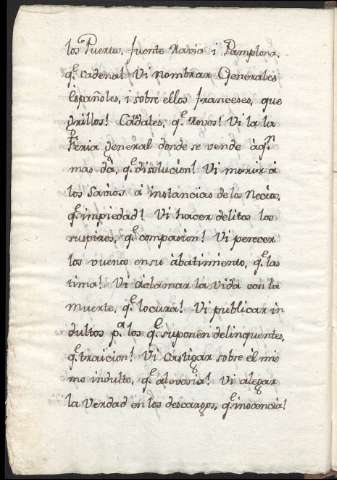 los Puertos, fuente Ravia i Pamplona,
q.e cadena! Vi nombrar Generales
Españoles, i sobre ellos franceses, que
grillos! q.e Vi la
Feria general donde se vende à q.n
mas dà, q.e disolucion! Vi morir à
los Santos à instancias de los Necios,
q.e impiedad! Vi hacer delitos los
suspiros, q.e compasion! Vi perecer
los buenos en su abatimiento, q.e las
tima! Vi la vida con la
muerte, q.e locura! Vi publicar in
dultos p.a los q.e suponen delinquentes,
q.e traicion! Vi Castigar sobre el mis
mo indulto, q.e alevosia! Vi alegar
la Verdad en los descargos, q.e inocencia!